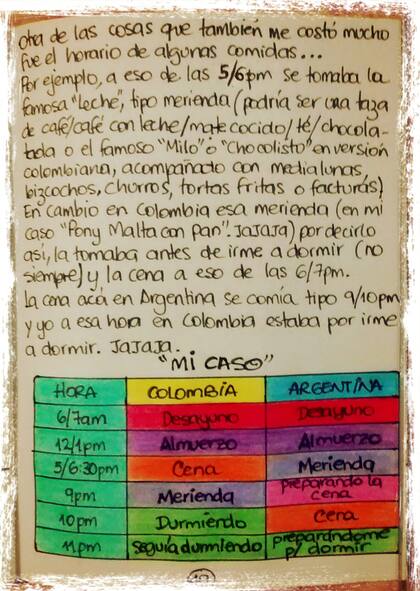 otra de las cosas que también me costó mucho
fue el horario de algunas comidas...
Por ejemplo, a eso de las 5/6pm se tomaba la
famosa "leche", tipo merienda (podría ser una taza
de café/café con leche/mate cocido/té/chocola-
tada o el famoso "Milo" ó "Chocolisto" en versión
colombiana, acompañado con medialunas,
bizcochos, churros, tortas fritas o facturas)
En cambio en Colombia esa merienda (en mi
caso "Pony Malta con pan". JaJaJa) por decirlo
así, la tomaba antes de irme a dormir (no
siempre) y la cena a eso de las 6/7pm.
la cena acá en Argentina se comía tipo 9/10pm
y yo a esa hora en Colombia estaba por irme
a dormir. JaJaJa.
"Mi CASO"
HORA COLOMBIA ARGENTINA
6/7am Desayuno Desayuno
12/1pm Almuerzo Almuerzo
5/6:30pm Cena Merienda
9pm Merienda preparando la cena
10pm Durmiendo Cena
11pm seguía durmiendo preparándome p/ dormir